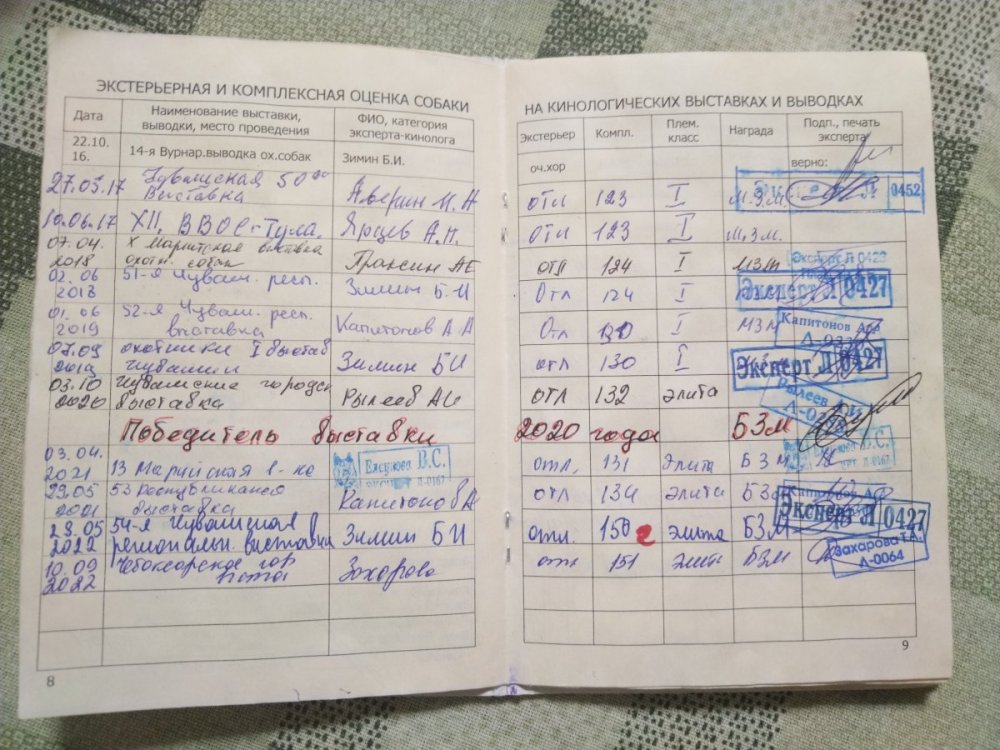 ЭКСТЕРЬЕРНАЯ И КОМПЛЕКСНАЯ ОЦЕНКА СОБАКИ
Дата
Наименование выставки,
выводки, место проведения
ФИО, категория
эксперта-кинолога
22.10.
16.
14-я Вурнар.выводка ох.собак
Зимин Б.И.
27.05.17
Чувашская 50ая
Выставка
Аверин И.А
10.06.17
XII, ВВОС-Тула.
Ярцев А.П.
07.04.
2018
X Марийская выставка
охотн. собак
Праксин АЕ
02.06
2018
51-я Чуваш. респ.
Зимин Б.И
01.06
2019
52-я Чуваш. респ.
выставка
Капитонов А А
07.09
2019
охотники I выстав
Чувашии
Зимин БИ
03.10
2020
Чувашские городск
выставка
Рылеев АИ
Победитель выставки
03.04.
2021
13 Марийская в-ка
В.С.
Л-0167
29.05
2021
53 Республиканс
выставка
Капитонов А
28.05
2022
54-я Чувашская
регионалн. выставка
Зимин БИ
10.09
2022
Чебоксарское гор
Захарова
8
НА КИНОЛОГИЧЕСКИХ ВЫСТАВКАХ И ВЫВОДКАХ
Экстерьер
Компл.
Плем.
класс
Награда
Подп., печать
эксперта
оч.хор
верно:
отл 123 I М.З.М.
0452
отл 123 I М.З.М.
отл 124 I МЗМ
Эксперт Л 0429
Отл 124 I
Эксперт Л 0427
Отл 130 I МЗМ
Капитонов
отл 130 I
Эксперт Л 0427
отл 132 элита
Рылеев
2020 года БЗМ
отл. 131 элита БЗМ
В.С.
Л-0167
отл 134 элита
отл. 150 элита БЗМ
Эксперт Л 0427
отл 151 элит БЗМ
Захарова Т.А.
Л-0064
9